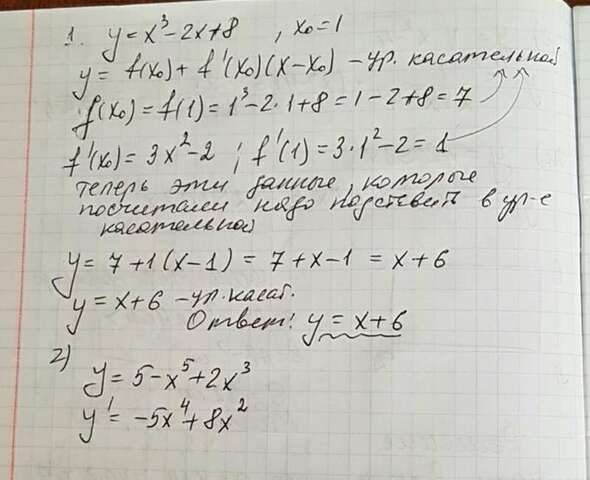 1. y = x³ - 2x + 8 , x₀ = 1
y = f(x₀) + f'(x₀)(x - x₀) - ур. касательной
f(x₀) = f(1) = 1³ - 2·1 + 8 = 1 - 2 + 8 = 7
f'(x₀) = 3x² - 2 ; f'(1) = 3·1² - 2 = 1
теперь эти данные, которые
посчитали надо подставить в ур-е
касательной
y = 7 + 1(x - 1) = 7 + x - 1 = x + 6
y = x + 6 - ур. касат.
Ответ: y = x + 6
2)
y = 5 - x⁵ + 2x³
y' = -5x⁴ + 8x²